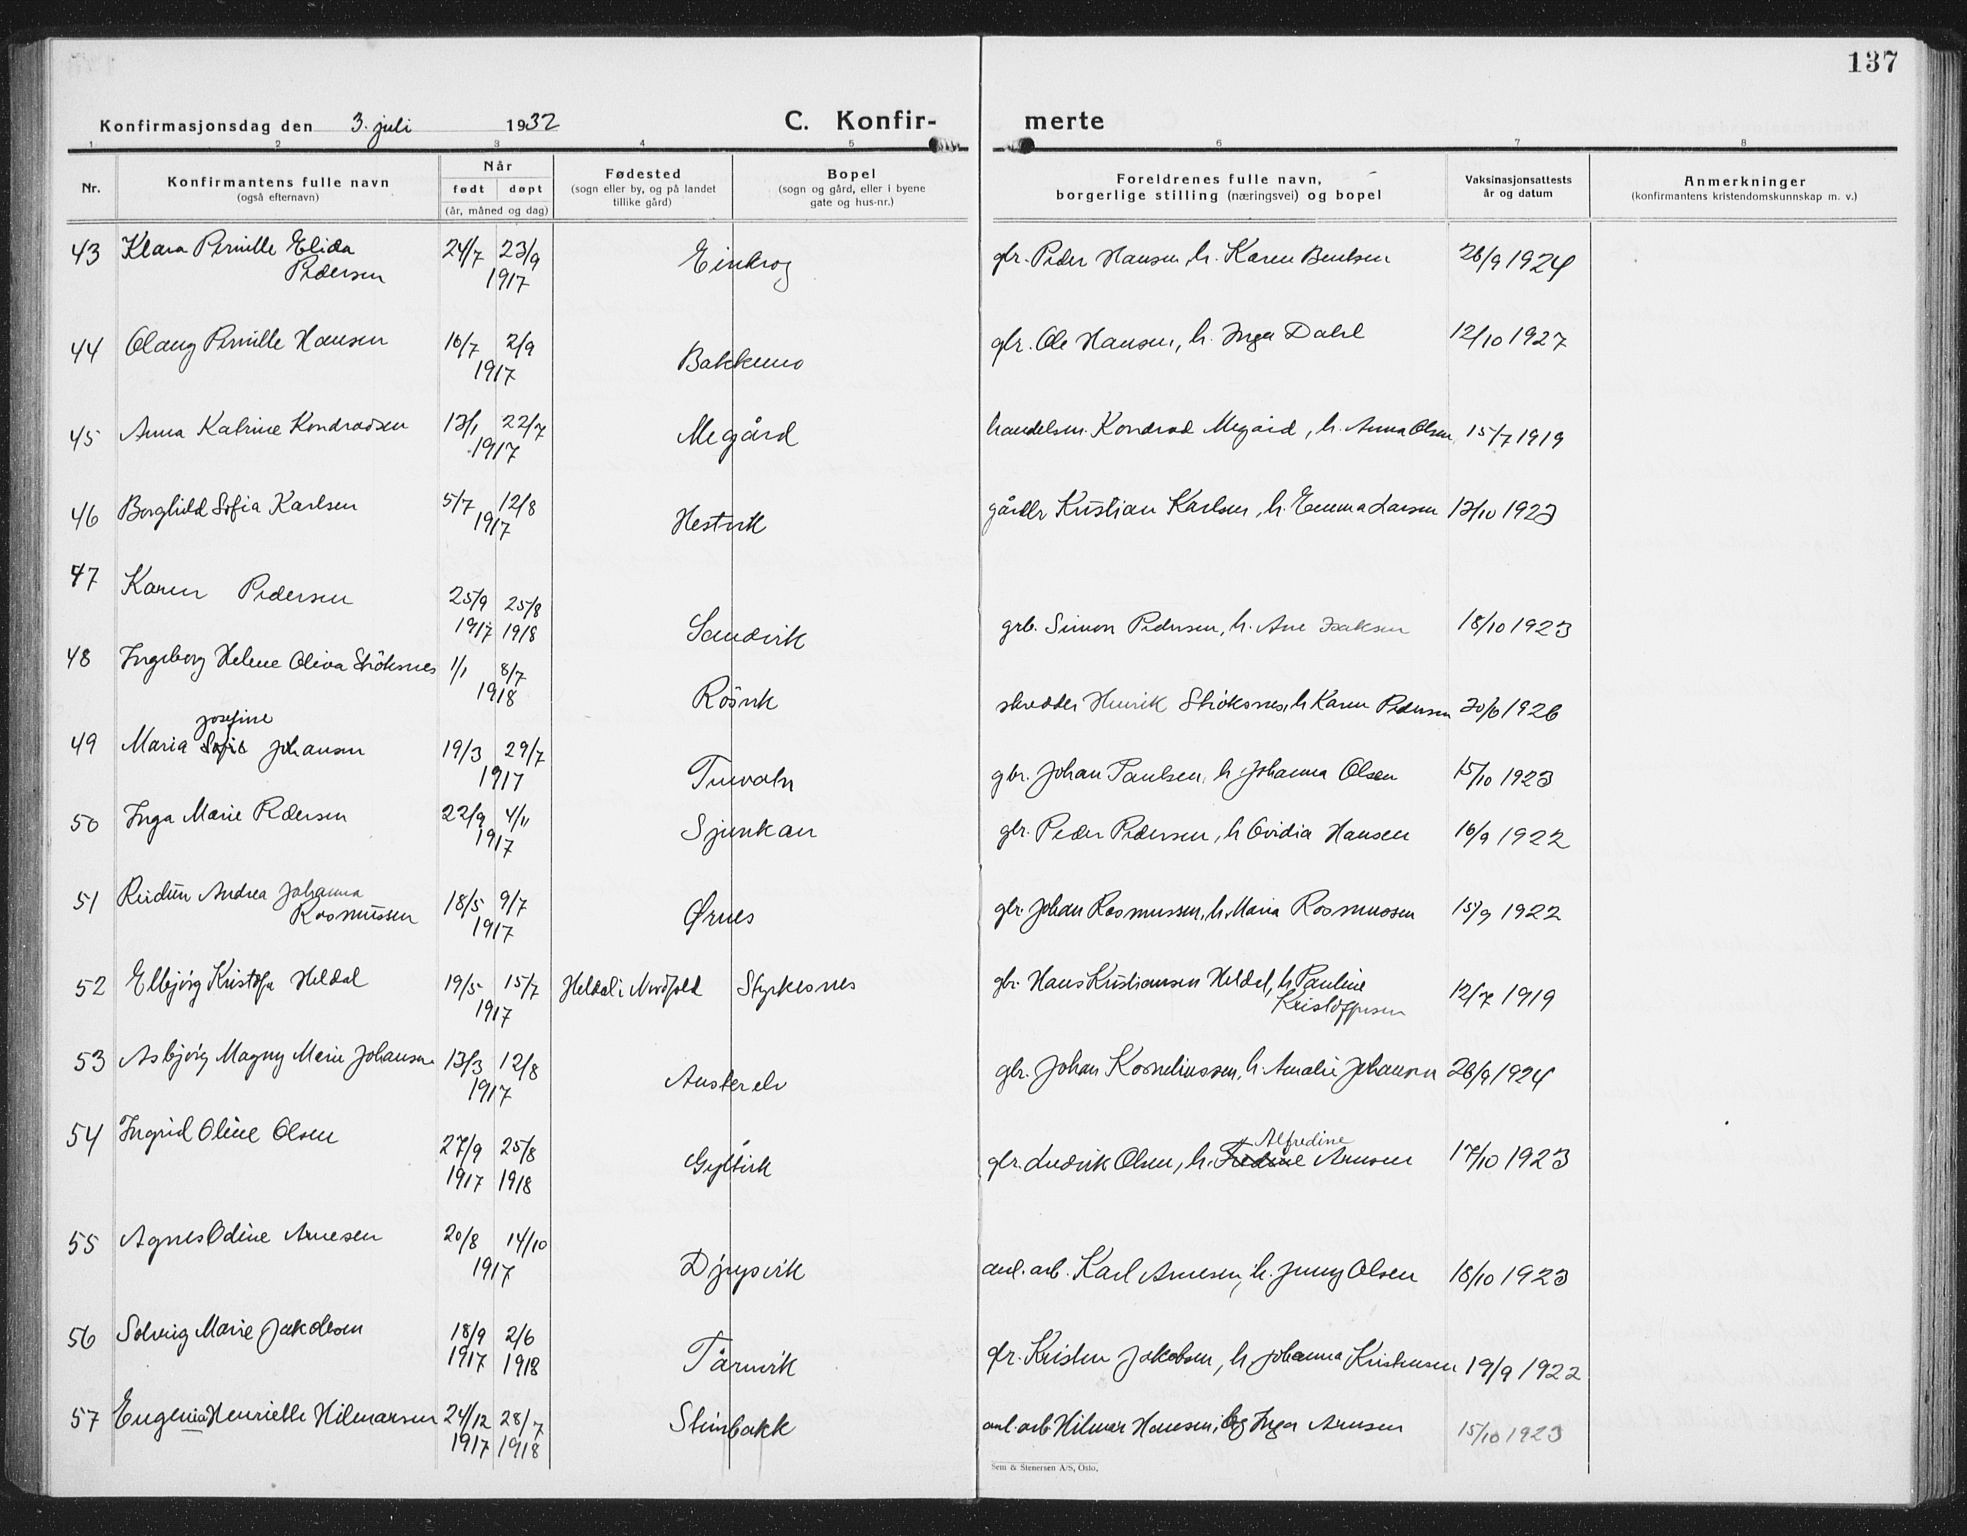 137
Konfirmasjonsdag den 3. juli 1932 C. Konfir- merte
1 2 3 4 5 6 7 8
Nr. Konfirmantens fulle navn (også efternavn) Når født døpt (år, måned og dag) Fødested (sogn eller by, og på landet tillike gård) Bopel (sogn og gård, eller i byene gate og hus-nr.) Foreldrenes fulle navn, borgerlige stilling (næringsvei) og bopel Vaksinasjonsattests år og datum Anmerkninger (konfirmantens kristendomskunnskap m. v.)
43 Klara Pernille Elida Pedersen 24/7 23/9 1917 gbr. Peder Hansen, h. Karen Bentsen 26/9 1924
44 Olaug Pernille Hansen 16/7 2/9 1917 Bakkemo gbr. Ole Hansen, h. Inga Dahl 12/10 1927
45 Anna Katrine Kondradsen 13/1 22/7 1917 Megård handelsm. Kondrad Megård, h. Anna Olsen 15/7 1919
46 Borghild Sofia Karlsen 5/7 12/8 1917 Hestvik gårdbr Kristian Karlsen, h. Emma Larsen 13/10 1923
47 Karen Pedersen 25/9 1917 25/8 1918 Sandvik grb. Simon Pedersen, h. Ane Isaksen 18/10 1923
48 Ingeborg Helene Oliva Ströksnes 1/1 8/7 1918 Rösvik skredder Henrik Ströksnes, h Karen Pedersen 20/6 1926
49 Maria Sofie Josefine Johansen 19/3 29/7 1917 gbr. Johan Paulsen, h Johanna Olsen 15/10 1923
50 Inga Marie Pedersen 22/9 4/11 1917 Sjunkan gbr. Peder Pedersen, h Ovidia Hansen 16/9 1922
51 Reidun Andrea Johanna Rasmussen 18/5 9/7 1917 Ørnes gbr. Johan Rasmussen, h. Maria Rasmussen 15/9 1922
52 Ellbjørg Kristofa Heldal 19/5 15/7 1917 Heldal i Nordfold Styrkesnes gbr. Hans Kristiansen Heldal, h Pauline Kristoffersen 12/7 1919
53 Asbjörg Magny Marie Johansen 13/3 12/8 1917 Austerelv gbr. Johan Korneliussen, h. Amalie Johansen 26/9 1924
54 Ingrid Oline Olsen 27/9 1917 25/8 1918 Gyltvik gbr. Ludvik Olsen, h. Fredine Alfredine Arnesen 17/10 1923
55 Agnes Odine Arnesen 20/8 14/10 1917 Djupvik anl. arb. Karl Arnesen, h. Jenny Olsen 18/10 1923
56 Solveig Marie Jakobsen 18/9 1917 2/6 1918 Tårnvik gbr. Kristen Jakobsen, h. Johanna Kristensen 19/9 1922
57 Eugenia Henrielle Hilmarsen 24/12 1917 28/7 1918 Stenbakk anl. arb. Hilmar Hansen, og Inga Arnesen 15/10 1923
Sem & Stenersen A/S, Oslo.